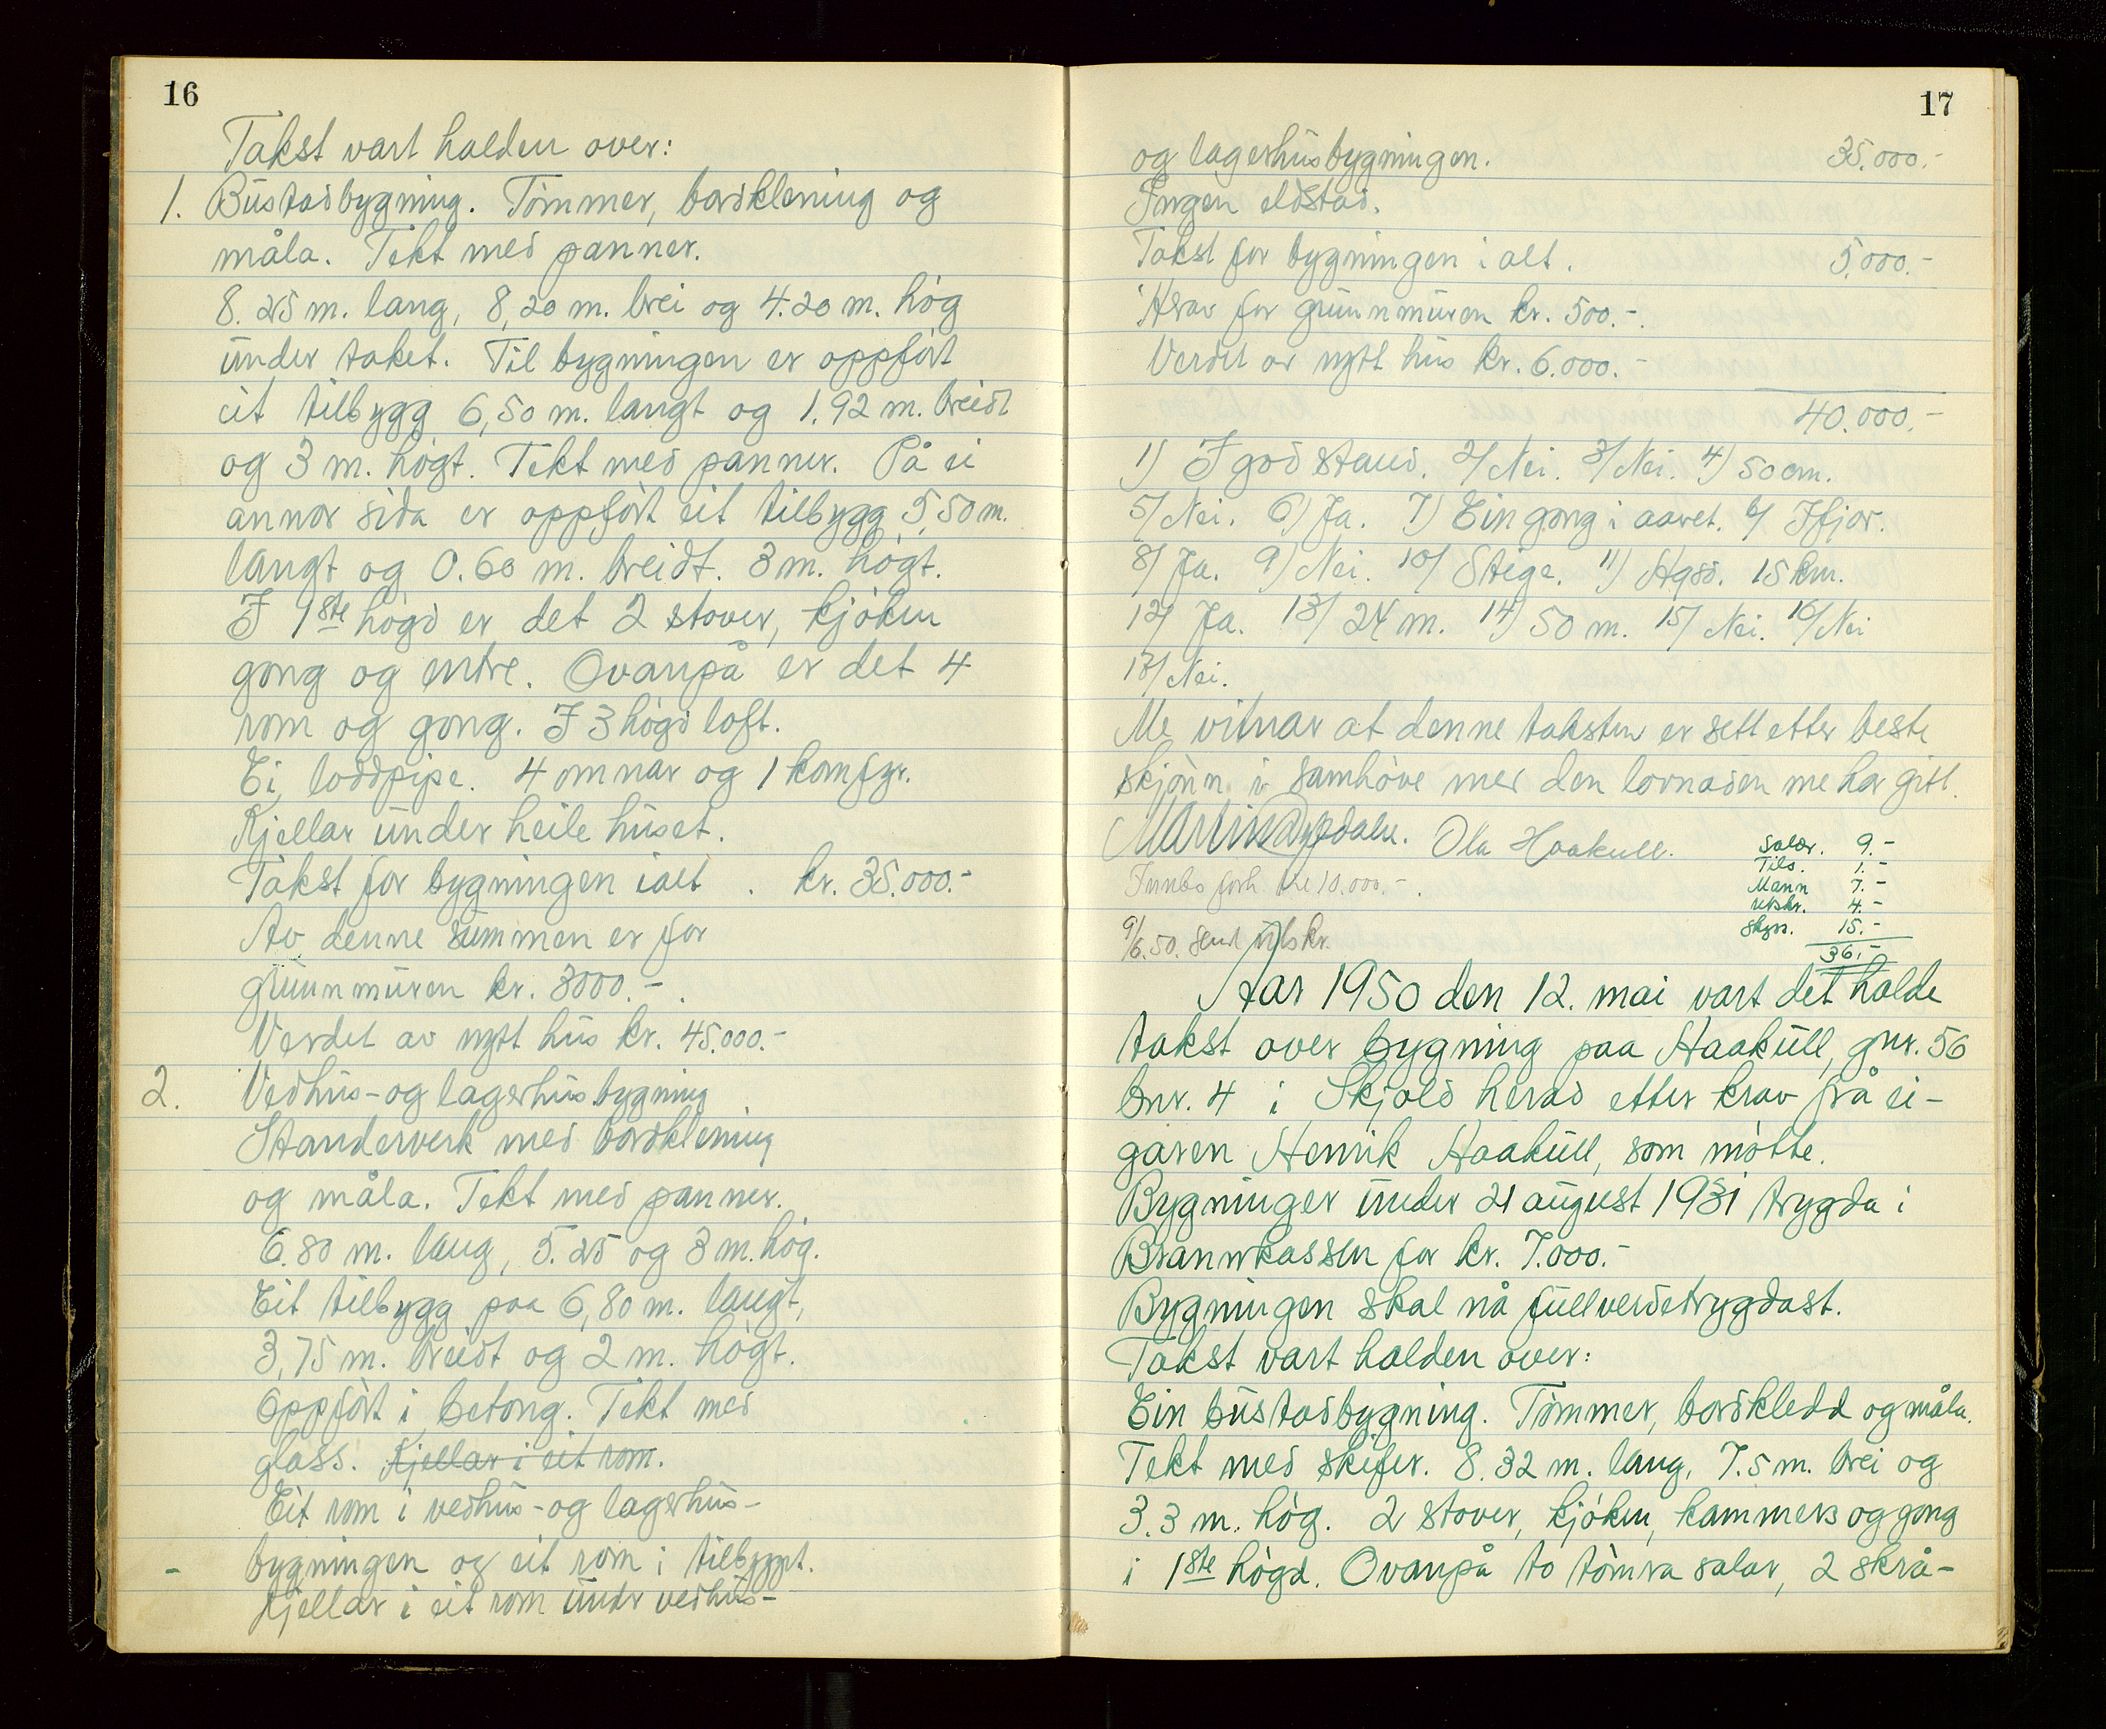 16
Takst vart halden over:
1. Bustadbygning. Tømmer, bordklening og
måla. Tekt med panner.
8.25 m. lang, 8,20 m. brei og 4.20 m. høg
under taket. Til bygningen er oppført
eit tilbygg 6,50 m. langt og 1.92 m. breidt
og 3 m. høgt. Tekt med panner. På ei
annor sida er oppført eit tilbygg 5,50 m.
langt og 0.60 m. breidt. 3 m. høgt.
I 1ste høgd er det 2 stover, kjøken
gong og entre. Ovanpå er det 4
rom og gong. I 3 høgd loft.
Ei loddpipe. 4 omnar og 1 komfyr.
Kjellar under heile huset.
Takst for bygningen ialt . kr. 35.000.-
Av denne summen er for
grunnmuren kr. 3000.-.
Verdet av nytt hus kr. 45.000.-
2. Vedhus- og lagerhusbygning
Standerverk med bordklening
og måla. Tekt med panner.
6.80 m. lang, 5.25 og 3 m. høg.
Eit tilbygg paa 6,80 m. langt,
3,75 m. breidt og 2 m. høgt.
Oppført i betong. Tekt med
glass. Kjellar i eit rom.
Eit rom i vedhus- og lagerhus-
bygningen og eit rom i tilbygget.
Kjellar i eit rom under vedhus-
17
og lagerhusbygningen. 35.000.-
Ingen eldstad.
Takst for bygningen i alt. 5.000.-
Herav for grunnmuren kr. 500.-.
Verdet av nytt hus kr. 6.000.-
40.000.-
1) I god stand. 2/ Nei. 3/ Nei. 4) 50 cm.
5/ Nei. 6) Ja. 7) Ein gong i aaret. b/ Ifjor.
8/ Ja. 9) Nei. 10/ Stige. 11) 15 km.
12/ Ja. 13/ 24 m. 14) 50 m. 15/ Nei. 16/ Nei
17/ Nei.
Me vitnar at denne taksten er sett etter beste
skjønn i samhøve med den lovnaden me har gitt.
Martin Ola Haakull.
Salær. 9.-
Tils. 1.-
Mann 7.-
Utskr. 4.-
Skyss. 15.-
36.-
Innbo forh. kr 10.000.-.
9/6.50. Send utskr.
Aar 1950 den 12. mai vart det halde
takst over bygning paa Haakull, gnr. 56
bnr. 4 i Skjold herad etter krav frå ei-
garen Henrik Haakull, som møtte.
Bygninger under 21 august 1931 trygda i
Brannkassen for kr. 7.000.-
Bygningen skal nå fullverdetrygdast.
Takst vart halden over:
Ein bustadbygning. Tømmer, bordkledd og måla.
Tekt med skifer. 8.32 m. lang, 7.5 m. brei og
3.3 m. høg. 2 stover, kjøken, kammers og gong
i 1ste høgd. Ovanpå to tømra salar, 2 skrå-